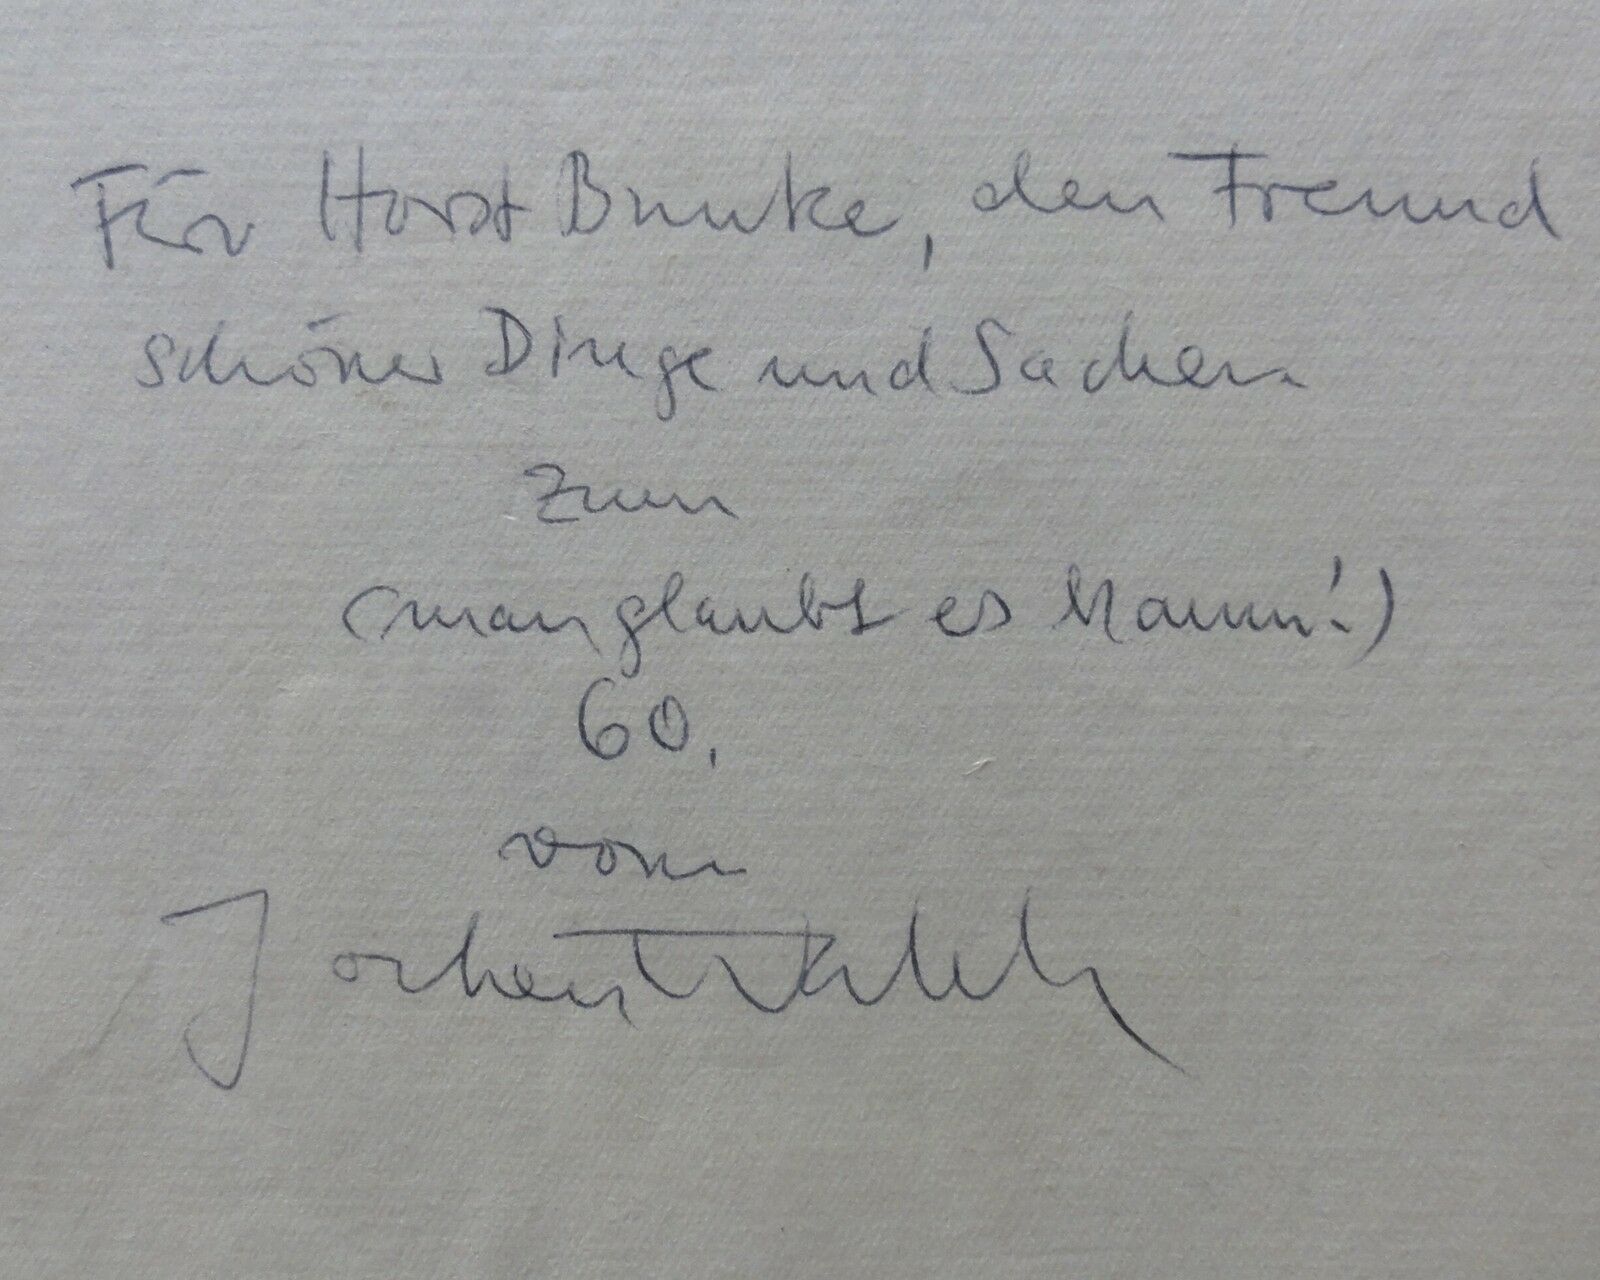 Für Horst Bunke, den Freund
schöner Dinge und Sachen
zum
(man glaubt es kaum!)
60.
vom
Jochen